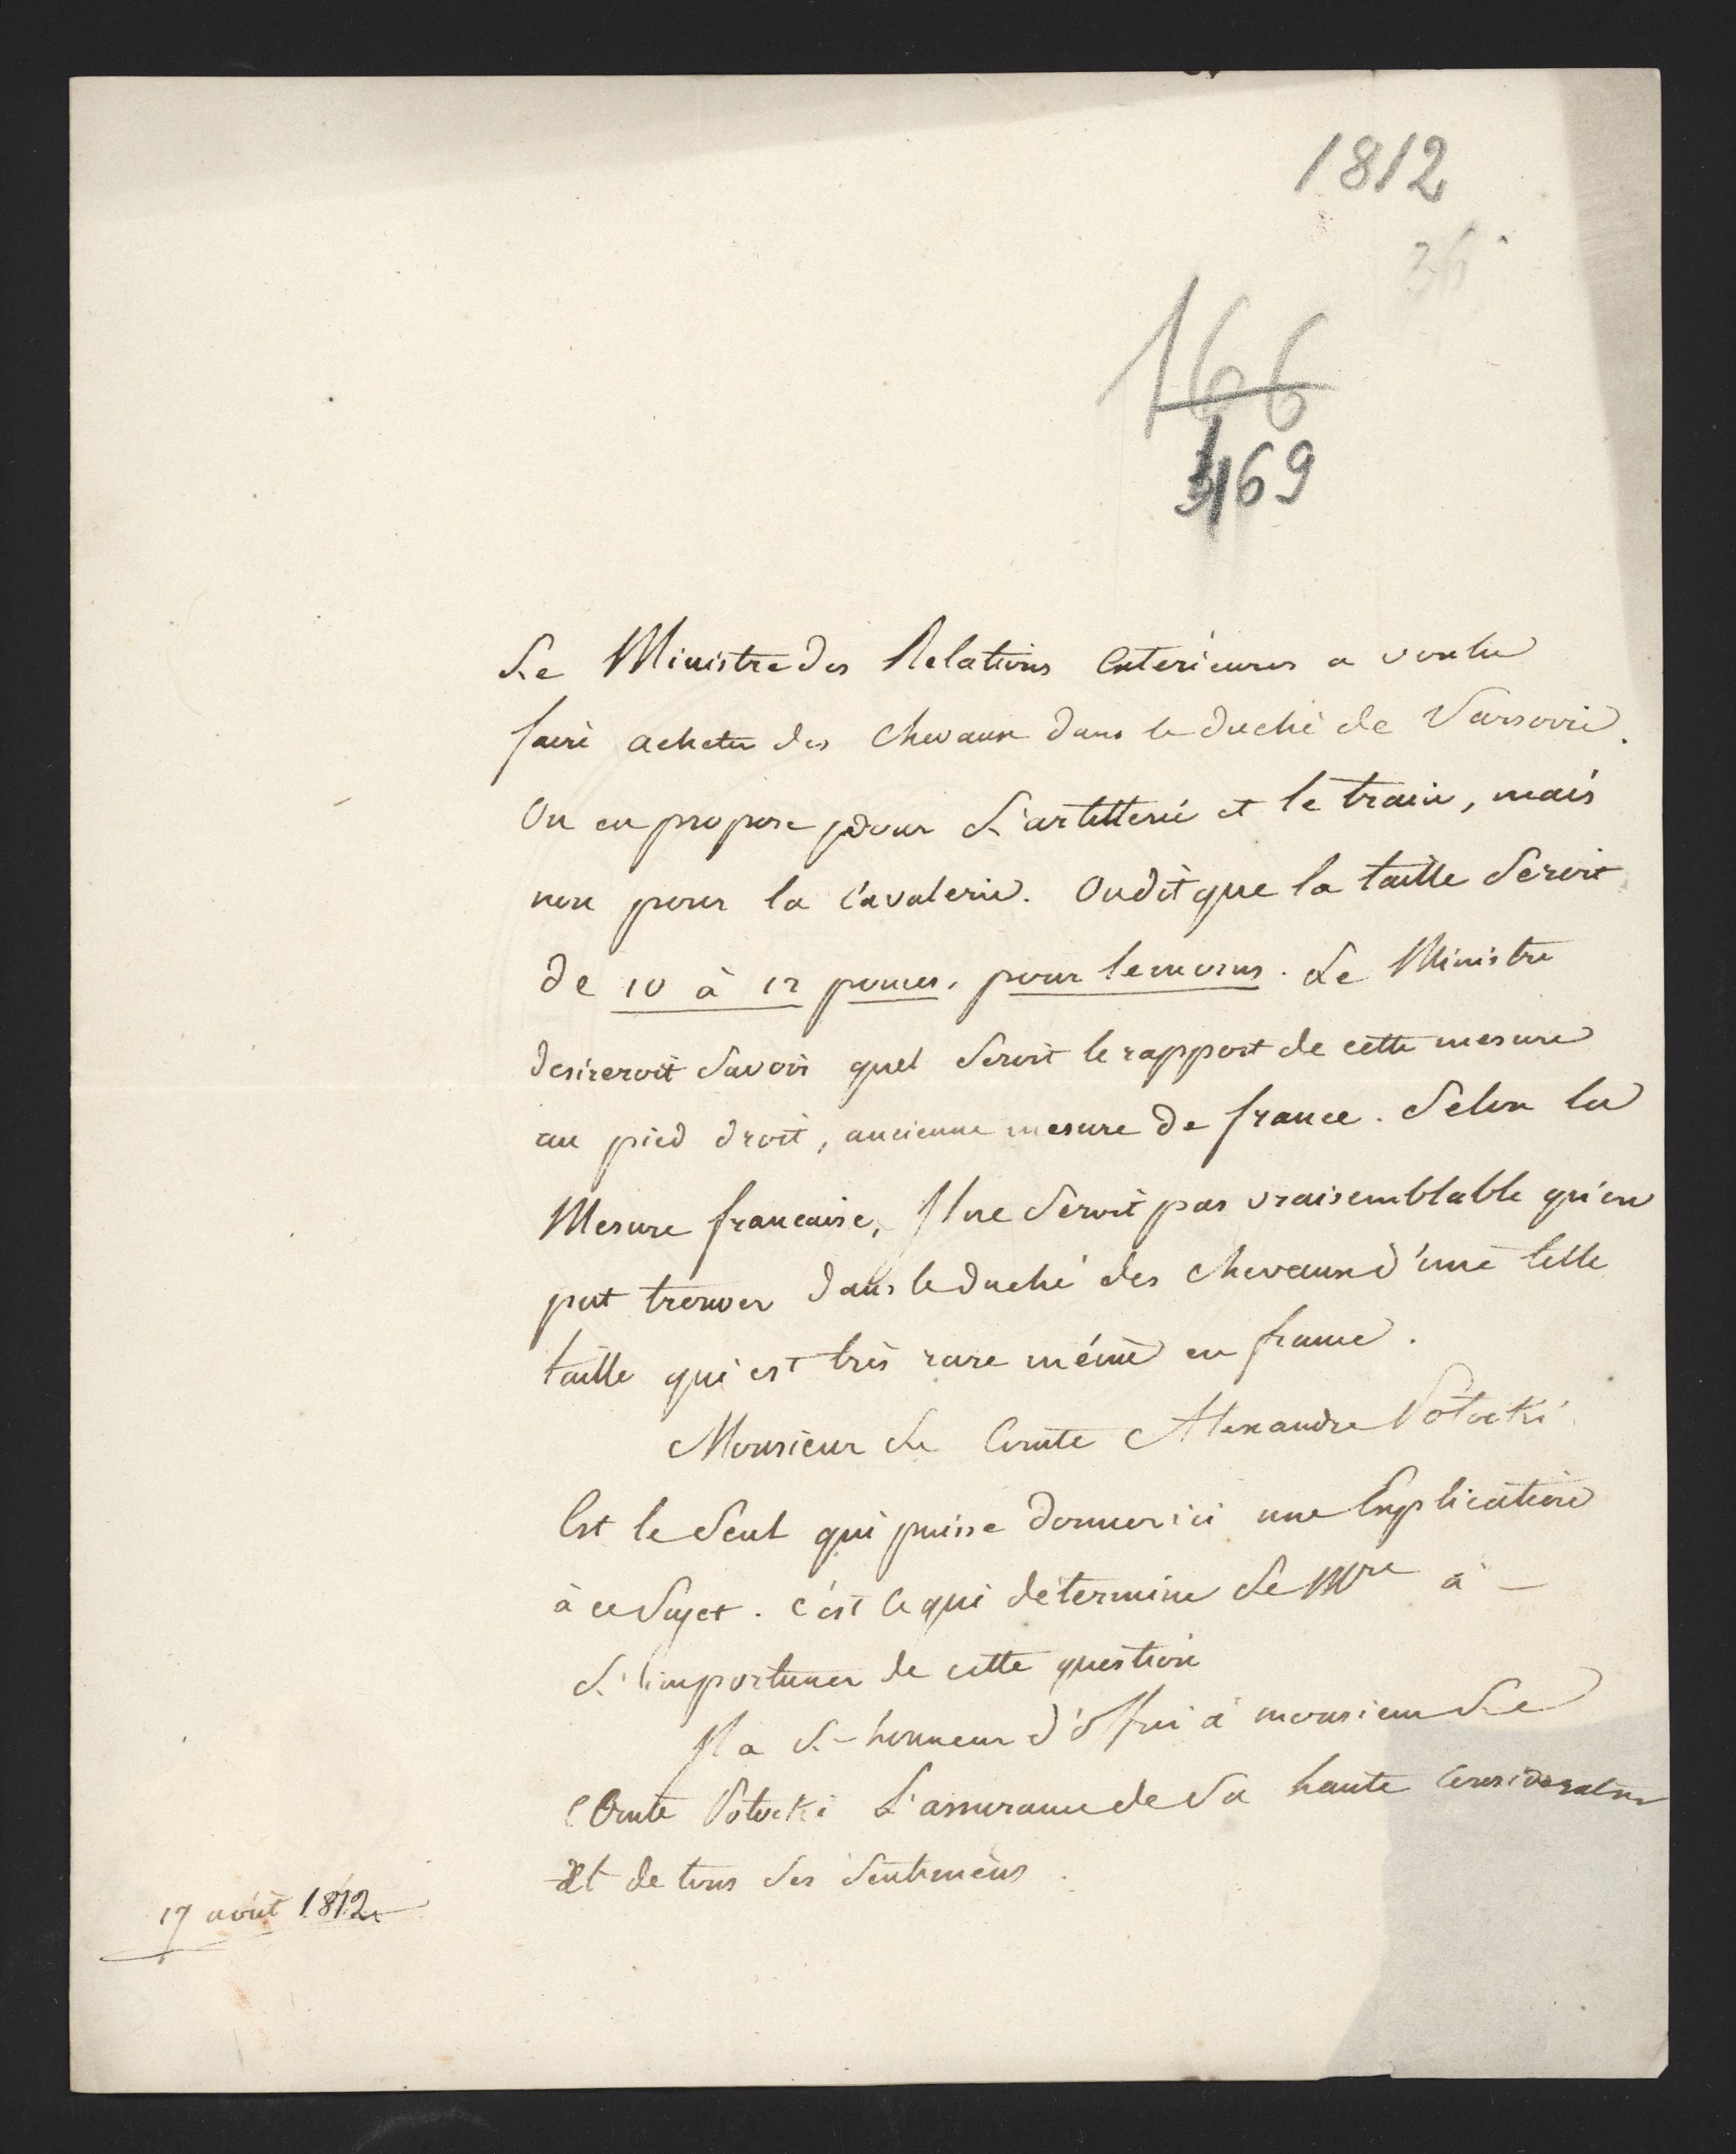 1812
36
166
169
Le Ministre des Relations Extérieures a voulu
faire acheter des chevaux dans le duché de Varsovie.
On en propose pour L'artillerie et le train, mais
non pour la Cavalerie. On dit que la taille Seroit
de 10 à 12 pouces, pour le moins. Le Ministre
desireroit Savoir quel Seroit le rapport de cette mesure
au pied droit, ancienne mesure de france. Selon la
Mesure francaise, Il ne Seroit pas vraisemblable qu'on
put trouver dans le duché des chevaux d'une telle
taille qui est très rare même en france.
Monsieur Le Comte Alexandre Potocki
Est le Seul qui puisse donner ici une Explication
à ce Sujet. c'est ce qui détermine Le Mre à -
L'importuner de cette question
Il a L'honneur d'offrir à monsieur Le
Comte Potocki L'assurance de Sa haute Consideration
Et de tous Ses Sentimens.
17 août 1812